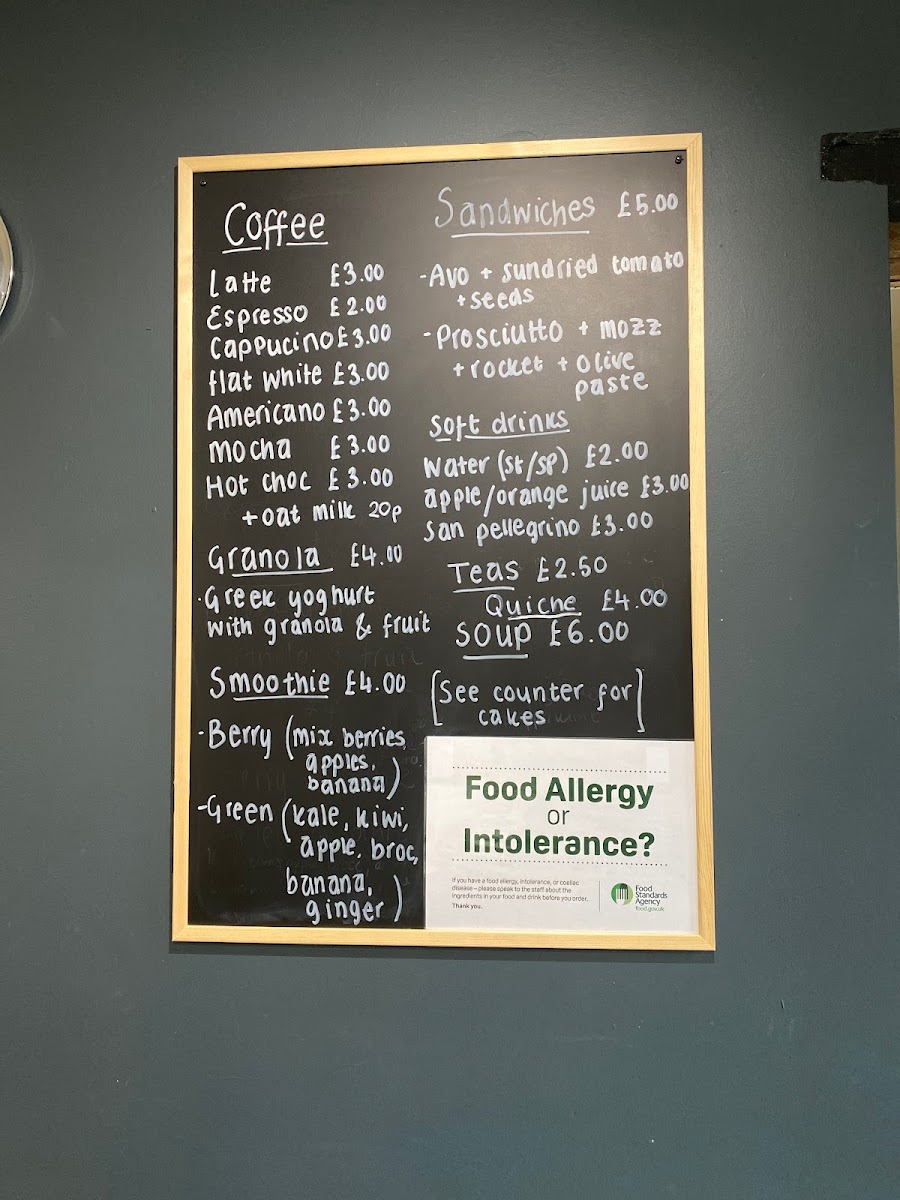 Coffee
Latte £3.00
Espresso £2.00
Cappucino £3.00
flat white £3.00
Americano £3.00
mocha £3.00
Hot choc £3.00
+ oat milk 20p
Granola £4.00
·Greek yoghurt
with granola & fruit
Smoothie £4.00
-Berry (mix berries,
apples,
banana)
-Green (kale, kiwi,
apple, broc,
banana,
ginger)
Sandwiches £5.00
-Avo + sundried tomato
+ seeds
-Prosciutto + mozz
+ rocket + olive
paste
Soft drinks
Water (st/sp) £2.00
apple/orange juice £3.00
San pellegrino £3.00
Teas £2.50
Quiche £4.00
SOUP £6.00
[See counter for
cakes]
Food Allergy
or
Intolerance?
If you have a food allergy, intolerance, or coeliac
disease – please speak to the staff about the
ingredients in your food and drink before you order.
Thank you.
Food
Standards
Agency
food.gov.uk